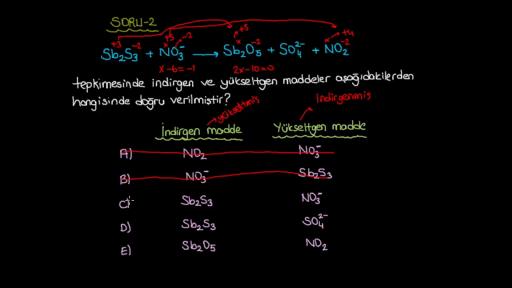 SORU-2
+3 -2 +5 -2 +5 -2 +4
Sb2S3 + NO3⁻ → Sb2O5 + SO4²⁻ + NO2 -2
x-6=-1 2x-10=0
tepkimesinde indirgen ve yükseltgen maddeler aşağıdakilerden
hangisinde doğru verilmiştir?
yükseltgenmiş İndirgenmiş
İndirgen madde Yükseltgen madde
A) NO2 NO3⁻
B) NO3⁻ Sb2S3
C) Sb2S3 NO3⁻
D) Sb2S3 SO4²⁻
E) Sb2O5 NO2